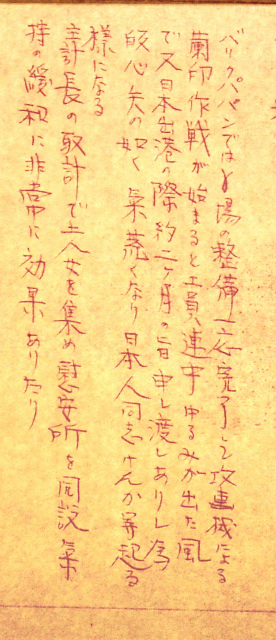 バリクパパンでは飛場の整備一応完了して攻撃機による
蘭印作戦が始まると工員連中ゆるみが出た風
で又日本出港の際約二ヶ月の旨申し渡しありし為
皈心矢の如く気荒くなり日本人同志けんか等起る
様になる
主計長の取計で土人女を集め慰安所を開設気
持の緩和に非常に効果ありたり